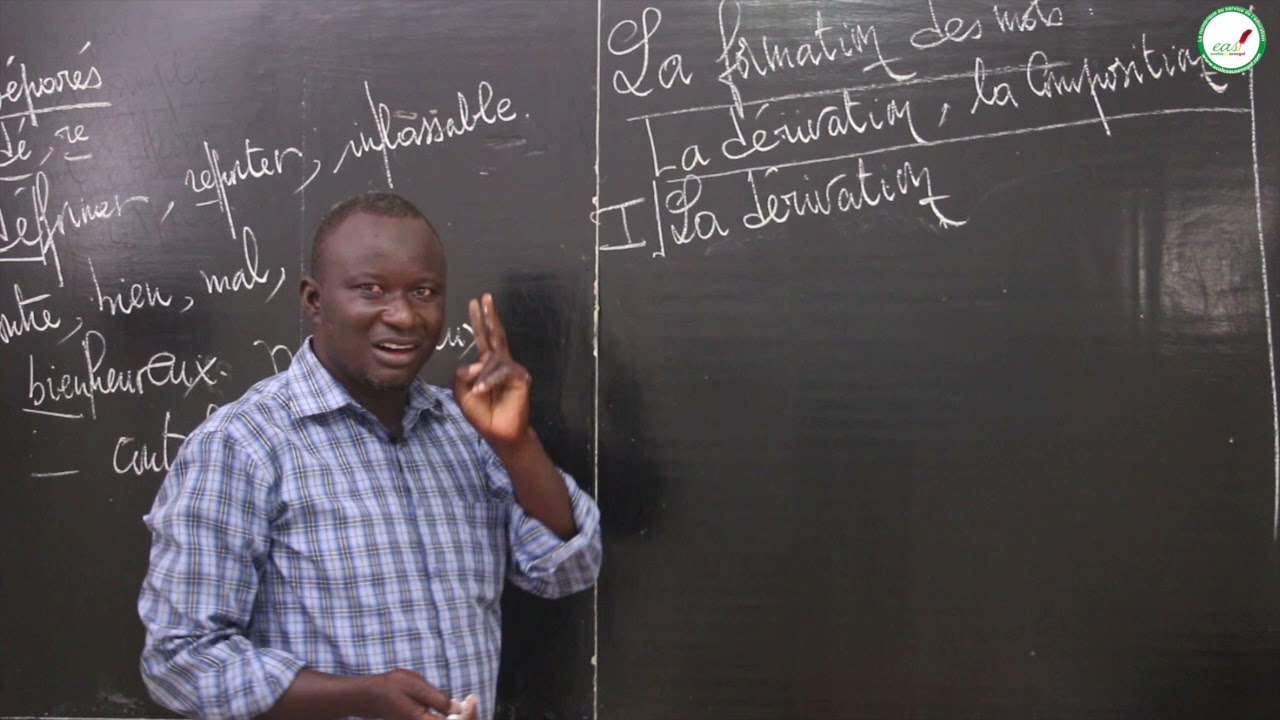 dé, re
déformer, reporter, impassable.
bien, mal,
bienheureux.
La formation des mots :
La dérivation, la Composition
I La dérivation
eas